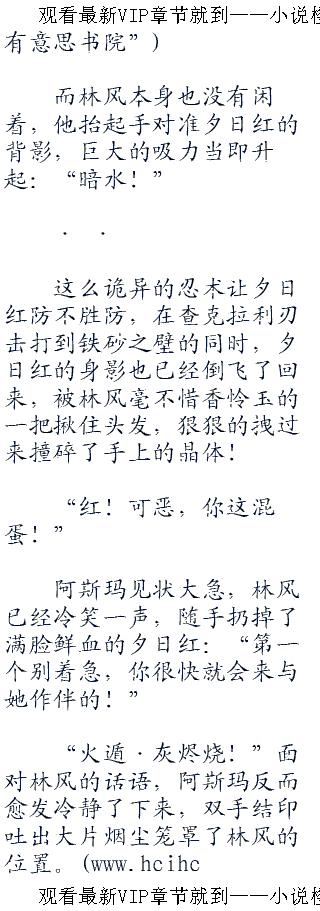 观看最新VIP章节就到——小说检
有意思书院”)
而林风本身也没有闲
着，他抬起手对准夕日红的
背影，巨大的吸力当即升
起：“暗水！”
． ．
这么诡异的忍术让夕日
红防不胜防，在查克拉利刃
击打到铁砂之壁的同时，夕
日红的身影也已经倒飞了回
来，被林风毫不惜香怜玉的
一把揪住头发，狠狠的拽过
来撞碎了手上的晶体！
“红！可恶，你这混
蛋！”
阿斯玛见状大急，林风
已经冷笑一声，随手扔掉了
满脸鲜血的夕日红：“第一
个别着急，你很快就会来与
她作伴的！”
“火遁·灰烬烧！”面
对林风的话语，阿斯玛反而
愈发冷静了下来，双手结印
吐出大片烟尘笼罩了林风的
位置。(www.hcihc
观看最新VIP章节就到——小说检